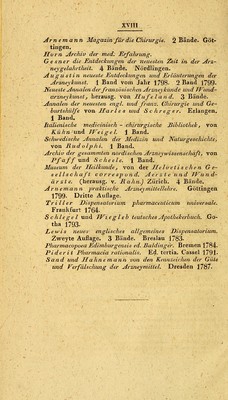 XVIII
Arnemann Magazin für die Chirurgie. 2 Bände. Göt-
tingen.
Horn Archiv der med. Erfahrung.
Gesner die Entdeckungen der neuesten Zeit in der Arz-
neygelahrtheit. 4 Bände, Nördlingen.
Augustin neueste Entdeckungen und Erläuterungen der
Arzneykunst. 1 Band vom Jahr 1798. 2 Band 1799.
Neueste Annalen der französischen Arzneykunde und Wund-
arzneykunst, herausg. von Hufeland. 3 Bände.
Annalen der neuesten engl. und franz. Chirurgie und Ge-
burtshülfe von Harles und Schreger. Erlangen.
1 Band.
Italiänische medicinisch - chirurgische Bibliothek, von
Kühn und Weigel. 1 Band.
Schwedische Annalen der Medicin und Naturgeschichte,
von Rudolphi. 1 Band.
Archiv der gesammten nordischen Arzneywissenschaft, von
Pfaff und Scheele. 1 Band.
Museum der Heilkunde, von der Helvetischen Ge-
sellschaft correspond. Aerzte und Wund-
ärzte. (herausg. v. Rahn) Zürich. 4 Bände.
Arnemann praktische Arzneymittellehre. Göttingen
1799. Dritte Auflage.
Triller Dispensatorium pharmaceuticum universale.
Frankfurt 1764.
Schlegel und Wiegleb teutsches Apothekerbuch. Go-
tha 1793.
Lewis neues englisches allgemeines Dispensatorium.
Zweyte Auflage. 3 Bände. Breslau 1783.
Pharmacopoea Edimburgensis ed. Baldinger. Bremen 1784.
Piderit Pharmacia rationalis. Ed. tertia. Cassel 1791.
Sand und Hahnemann von den Kennzeichen der Güte
und Verfälschung der Arzneymittel. Dresden 1787.